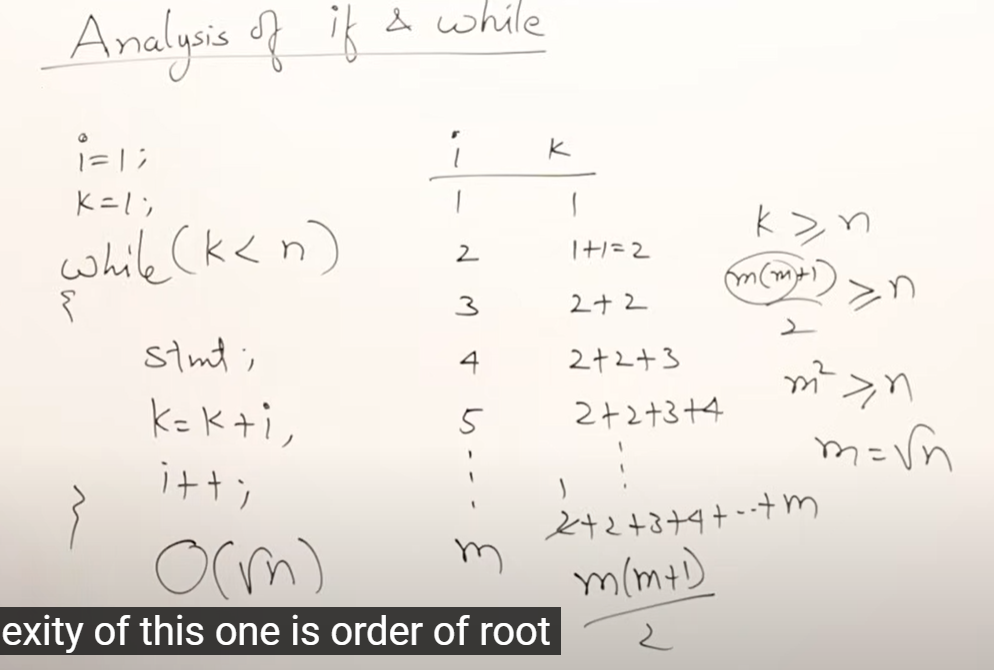 Analysis of if & while
i=1;
k=1;
while(k<n)
{
stmt;
k=k+i,
i++;
}
O(√n)
i k
1 1
2 1+1=2
3 2+2
4 2+2+3
5 2+2+3+4
m 2+2+3+4+--+m
1
m(m+1)
2
k ≥ n
m(m+1) ≥ n
2
m² ≥ n
m=√n
exity of this one is order of root